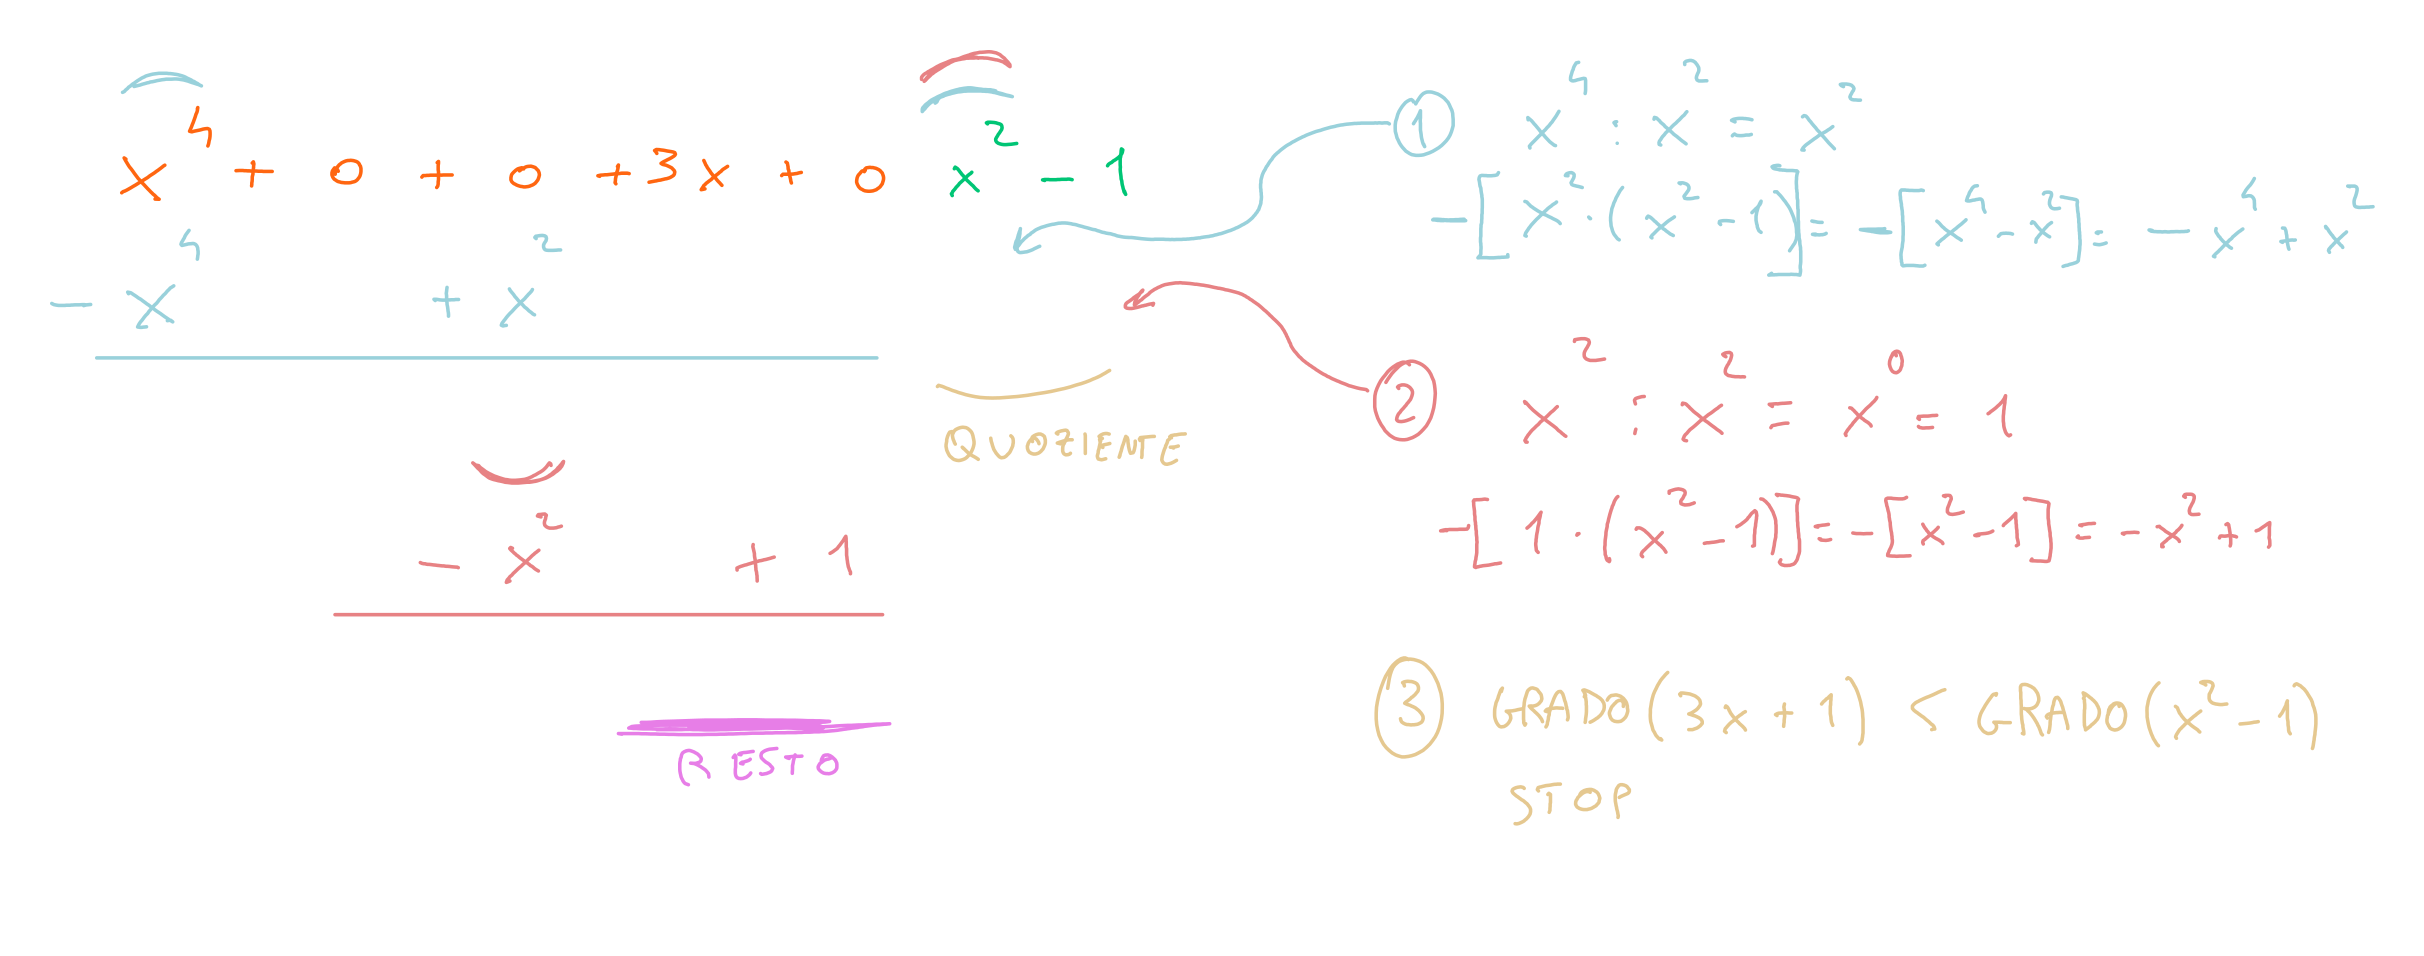 x⁴ + 0 + 0 + 3x + 0 x² - 1
- x⁴ + x²
QUOZIENTE
- x² + 1
RESTO
① x⁴ : x² = x²
-[x² · (x² - 1)] = -[x⁴ - x²] = - x⁴ + x²
② x² : x² = x⁰ = 1
-[1 · (x² - 1)] = -[x² - 1] = - x² + 1
③ GRADO(3x + 1) < GRADO(x² - 1)
STOP